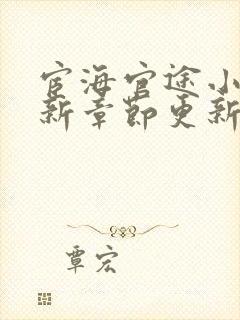 宦海官途小
新章节更新
覃宏